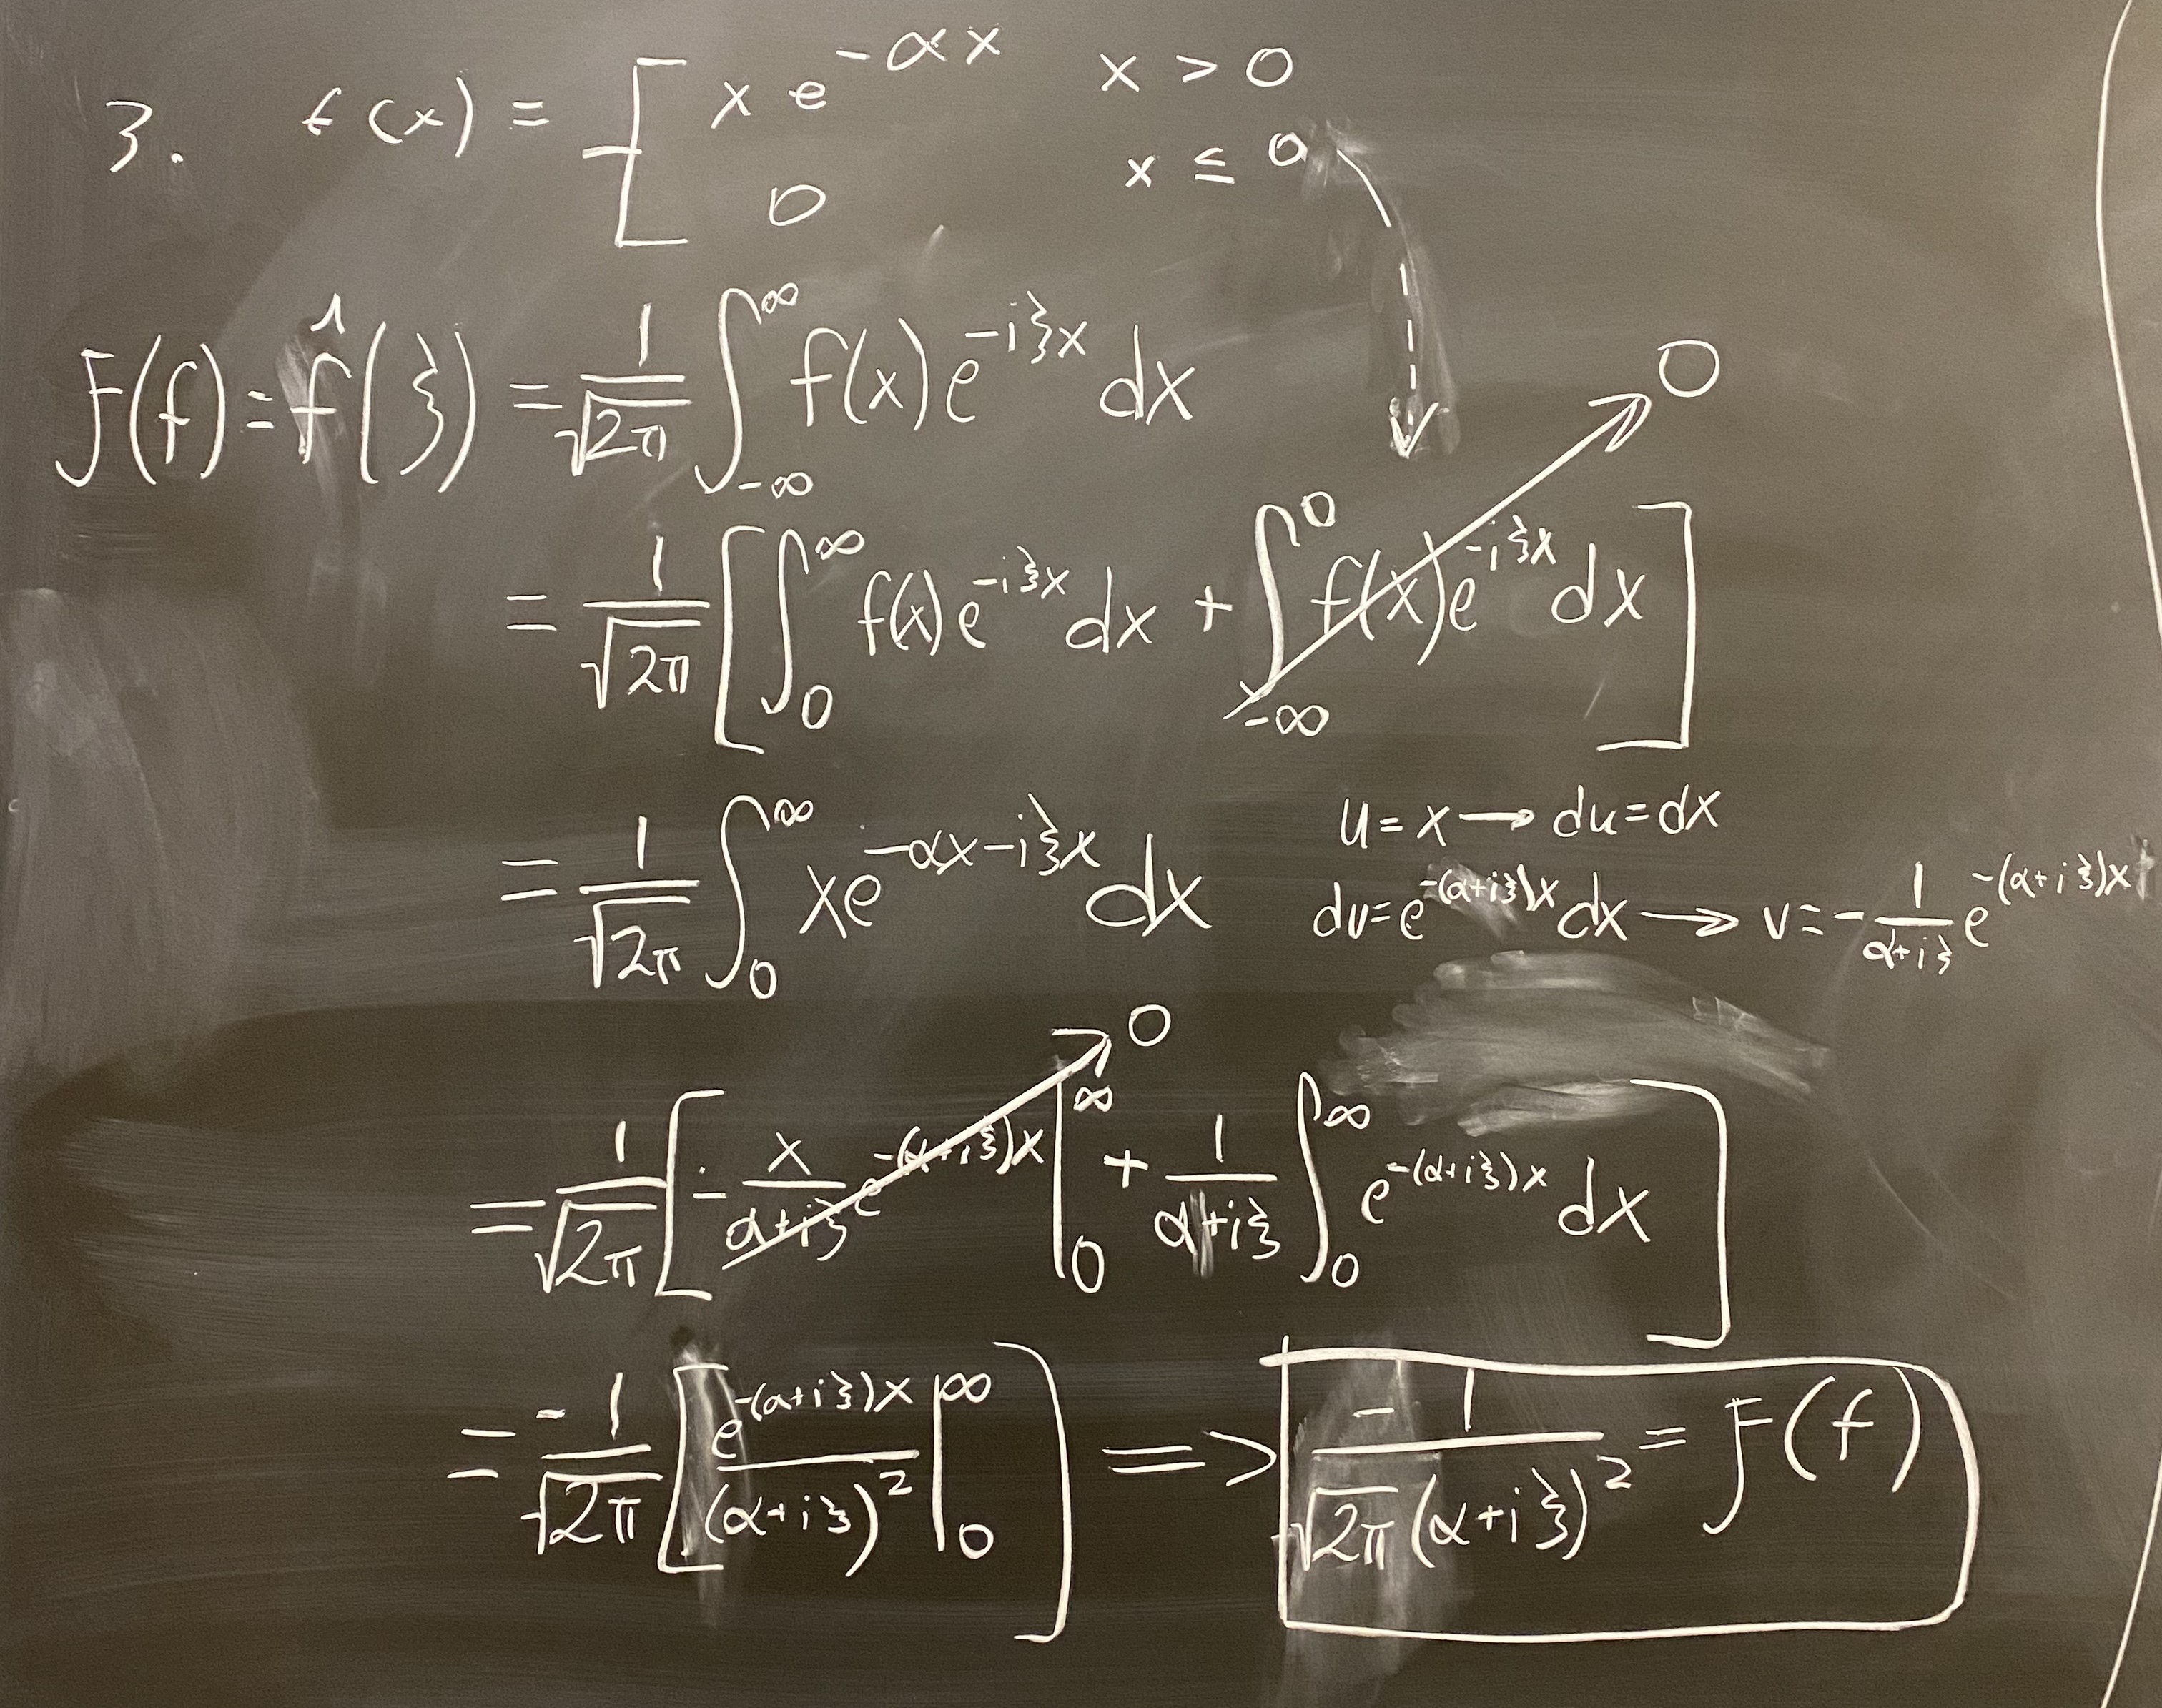 3. f(x) = [ x e^{-αx} x > 0
0 x ≤ 0
F(f) = f̂(ξ) = 1/√2π ∫_{-∞}^{∞} f(x) e^{-iξx} dx
= 1/√2π [ ∫_0^∞ f(x) e^{-iξx} dx + ∫_{-∞}^0 f(x) e^{-iξx} dx ] → 0
= 1/√2π ∫_0^∞ x e^{-αx-iξx} dx
u = x → du = dx
dv = e^{-(α+iξ)x} dx → v = - 1/(α+iξ) e^{-(α+iξ)x}
= 1/√2π [ - x/(α+iξ) e^{-(α+iξ)x} |_0^∞ → 0 + 1/(α+iξ) ∫_0^∞ e^{-(α+iξ)x} dx ]
= -1/√2π [ e^{-(α+iξ)x}/(α+iξ)^2 |_0^∞ ] => -1/(√2π (α+iξ)^2) = F(f)